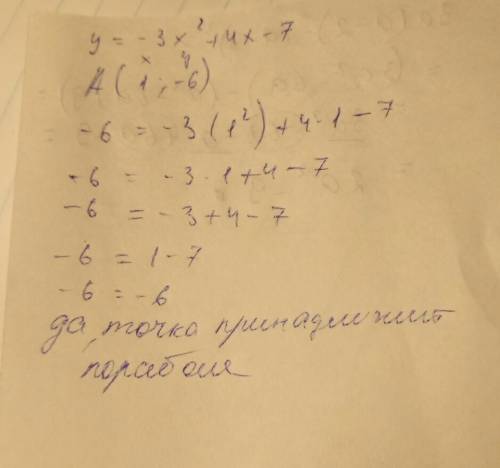 y = -3x² + 4x - 7
x y
A (1 ; -6)
-6 = -3 (1²) + 4 · 1 - 7
-6 = -3 · 1 + 4 - 7
-6 = -3 + 4 - 7
-6 = 1 - 7
-6 = -6
да, точка принадлижит
пораболе